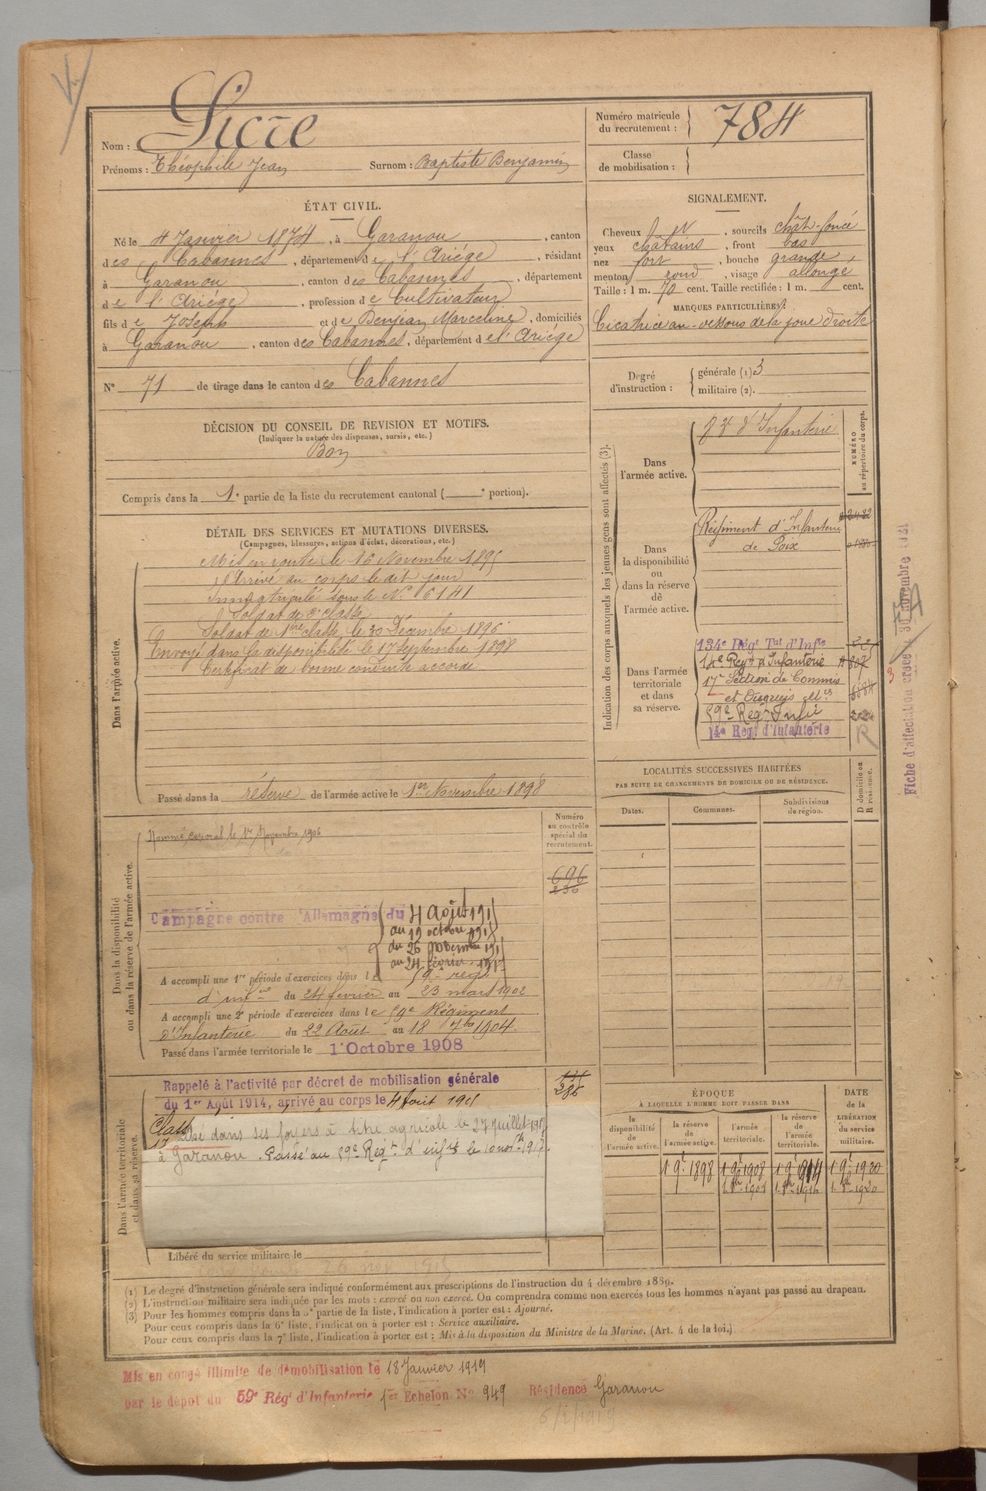 Nom : Sicre
Prénoms : Théophile Jean Surnom : Baptiste Benjamin
Numéro matricule
du recrutement : 784
Classe
de mobilisation :
ÉTAT CIVIL.
Né le 4 Janvier 1874, à Garanou, canton
des Cabannes, département de l'Ariége, résidant
à Garanou, canton des Cabannes, département
de l'Ariége, profession de Cultivateur
fils de Joseph et de Benjean Marceline, domiciliés
à Garanou, canton des Cabannes, département de l'Ariége
N° 71 de tirage dans le canton des Cabannes
SIGNALEMENT.
Cheveux N, sourcils chât-foncé
yeux châtains, front bas
nez fort, bouche grande,
menton rond, visage allongé
Taille : 1 m. 70 cent. Taille rectifiée : 1 m. cent.
MARQUES PARTICULIÈRES
Cicatrice au-dessous de la joue droite
Degré
d'instruction :
générale (1) 3
militaire (2).
DÉCISION DU CONSEIL DE REVISION ET MOTIFS.
(Indiquer la nature des dispenses, sursis, etc.)
Bon
Compris dans la 1e partie de la liste du recrutement cantonal ( e portion).
DÉTAIL DES SERVICES ET MUTATIONS DIVERSES.
(Campagnes, blessures, actions d'éclat, décorations, etc.)
Dans l'armée active.
Mis en route le 16 Novembre 1895
Arrivé au corps le dit jour
Immatriculé sous le N° 6141
Soldat de 2e classe
Soldat de 1ère classe le 30 Décembre 1896
Envoyé dans la disponibilité le 17 Septembre 1898
Certificat de bonne conduite accordé
Passé dans la réserve de l'armée active le 1er Novembre 1898
Indication des corps auxquels les jeunes gens sont affectés (3).
NUMÉRO
au répertoire du corps.
Dans
l'armée active.
d'Infanterie
Dans
la disponibilité
ou
dans la réserve
de
l'armée active.
Régiment d'Infanterie
de Foix
Dans l'armée
territoriale
et dans
sa réserve.
134e Régt Tal d'Infie
14e Regt d'Infanterie
17e Section de Commis
et Ouvriers
59e Regt Infie
14e Régt d'Infanterie
Fiche d'affectation
novembre
LOCALITÉS SUCCESSIVES HABITÉES
PAR SUITE DE CHANGEMENTS DE DOMICILE OU DE RÉSIDENCE.
Dates. Communes. Subdivisions
de région.
D domicile ou
R résidence.
Dans la disponibilité
ou dans la réserve de l'armée active.
Numéro
au contrôle
spécial du
recrutement.
Nommé caporal le 17 Novembre 1906
696
236
Campagne contre l'Allemagne du 4 Août 191
au 19 octobre 191
du 26 novembre 191
au 24 février 191
A accompli une 1re période d'exercices dans le 59e régt
d'infie du 24 février au 23 mars 1902
A accompli une 2e période d'exercices dans le 59e Régiment
d'Infanterie du 22 Août au 18 7bre 1904
Passé dans l'armée territoriale le 1er Octobre 1908
Dans l'armée territoriale
et dans sa réserve.
Rappelé à l'activité par décret de mobilisation générale
du 1er Août 1914, arrivé au corps le 4 Août 191
286
Class
dans ses foyers à titre agricole le 27 juillet 1917
à Garanou. Passé au 59e Régt d'infie le 10 1917
Libéré du service militaire le
ÉPOQUE
À LAQUELLE L'HOMME DOIT PASSER DANS
la
disponibilité
de
l'armée active.
la réserve
de
l'armée active.
l'armée
territoriale.
la réserve
de
l'armée
territoriale.
DATE
de la
LIBÉRATION
du service
militaire.
1 9e 1898 1 9e 1908 1 9e 1914 1 9e 1920
(1) Le degré d'instruction générale sera indiqué conformément aux prescriptions de l'instruction du 4 décembre 1889.
(2) L'instruction militaire sera indiquée par les mots : exercé ou non exercé. On comprendra comme non exercés tous les hommes n'ayant pas passé au drapeau.
(3) Pour les hommes compris dans la 5e partie de la liste, l'indication à porter est : Ajourné.
Pour ceux compris dans la 6e liste, l'indication à porter est : Service auxiliaire.
Pour ceux compris dans la 7e liste, l'indication à porter est : Mis à la disposition du Ministre de la Marine. (Art. 4 de la loi.)
Mis en congé illimité de démobilisation le 18 Janvier 1919
par le dépôt du 59e Régt d'Infanterie 1er Echelon N° 949 Résidence Garanou